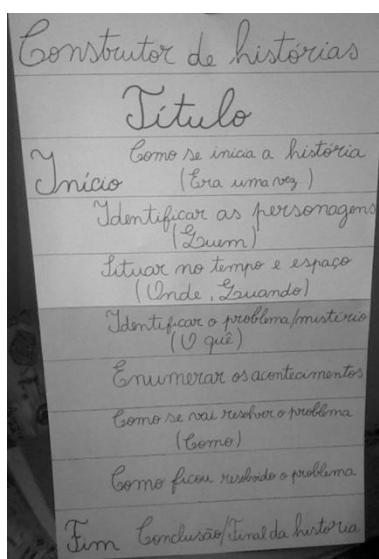 Construtor de histórias
Título
Início Como se inicia a história
(Era uma vez)
Identificar as personagens
(Quem)
Situar no tempo e espaço
(Onde, Quando)
Identificar o problema/mistério
(O quê)
Enumerar os acontecimentos
Como se vai resolver o problema
(Como)
Como ficou resolvido o problema
Fim Conclusão/Final da história